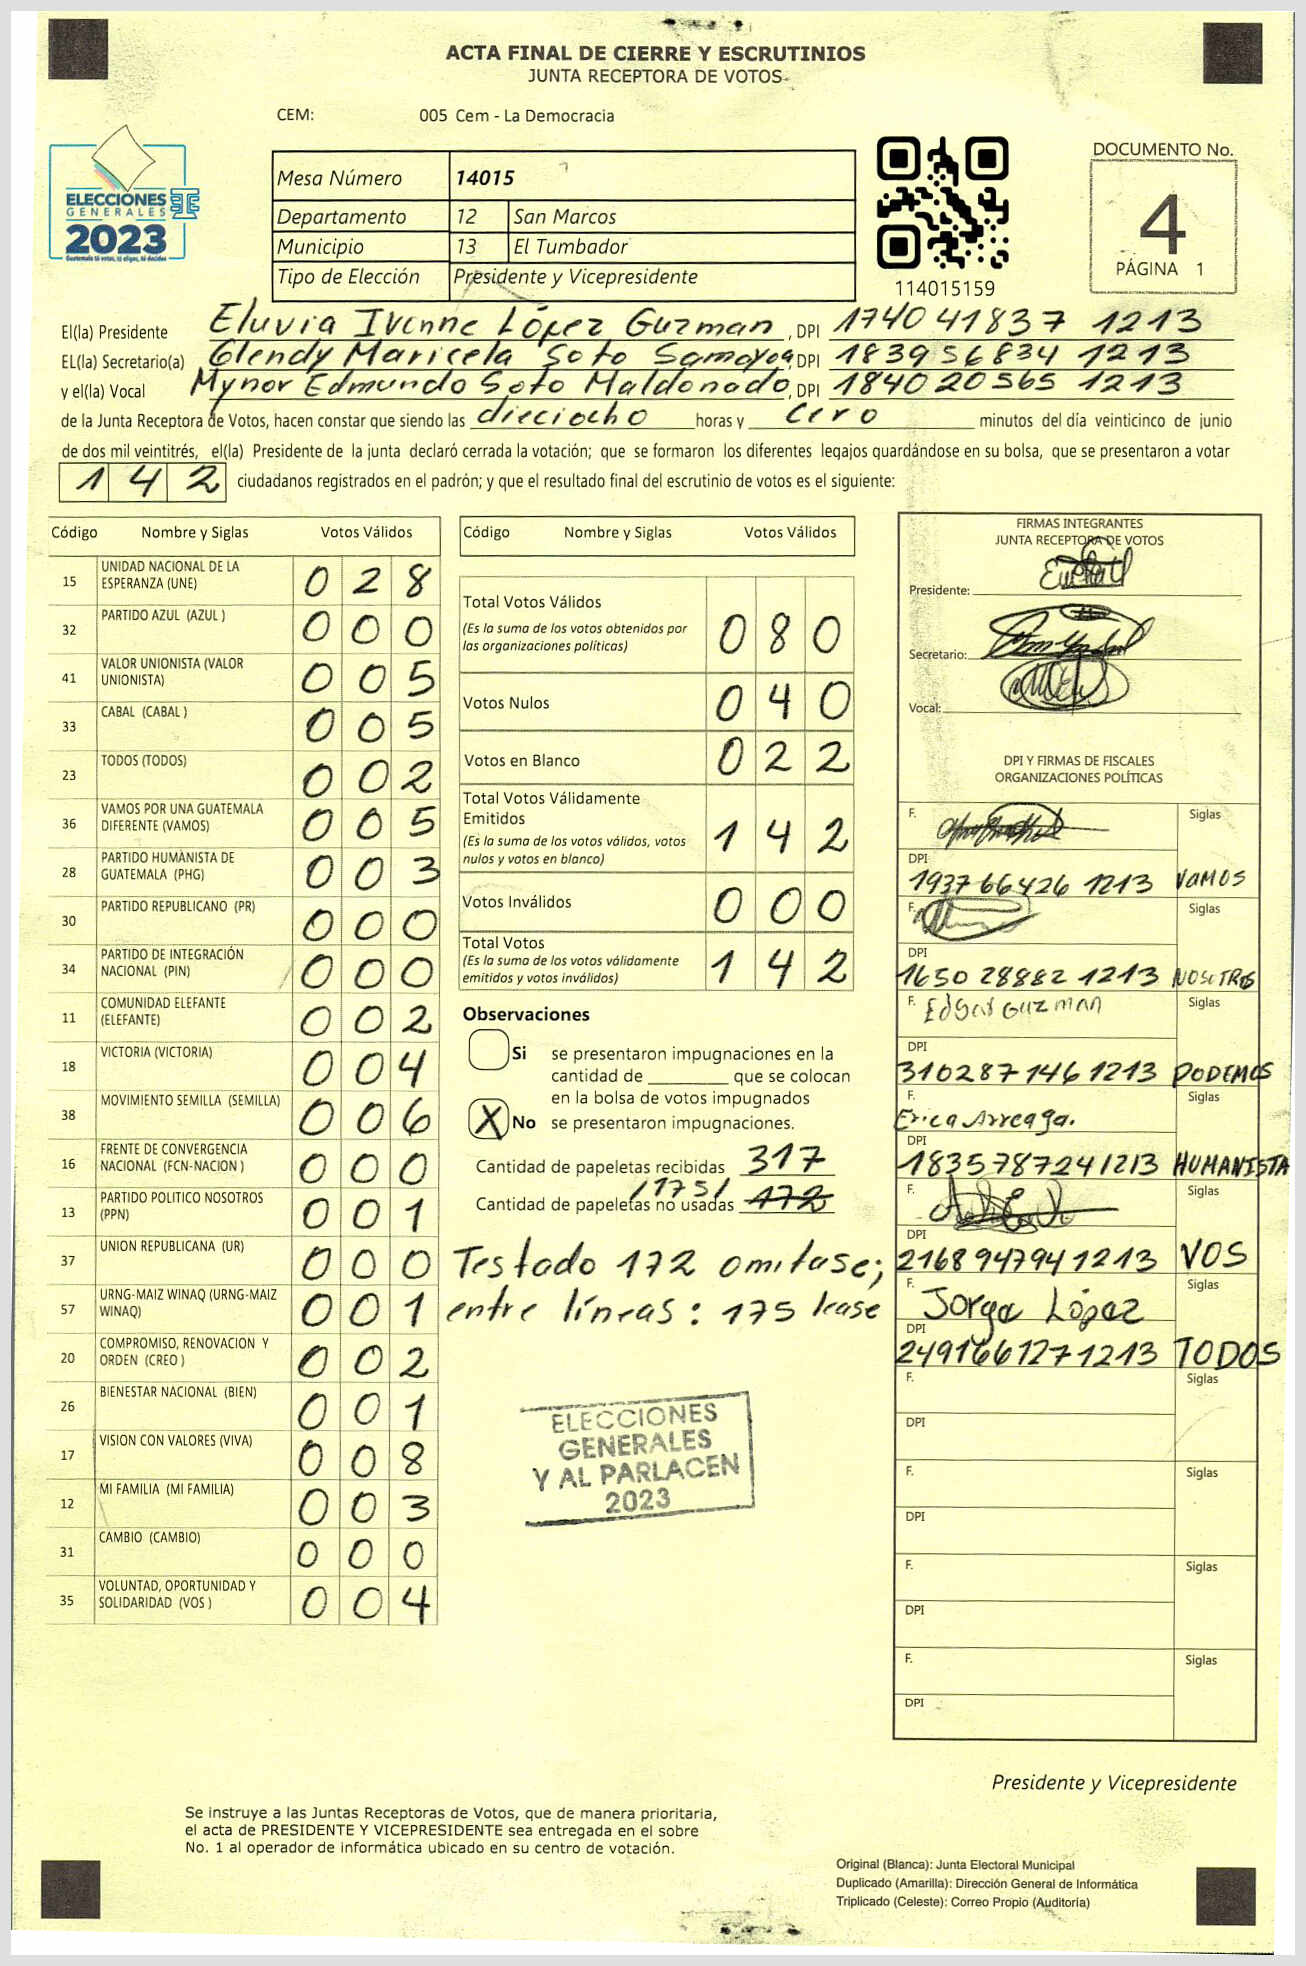 ACTA FINAL DE CIERRE Y ESCRUTINIOS
JUNTA RECEPTORA DE VOTOS
CEM: 005 Cem - La Democracia
ELECCIONES
GENERALES
2023
Guatemala tú votas, tú eliges, tú decides
Mesa Número 14015
Departamento 12 San Marcos
Municipio 13 El Tumbador
Tipo de Elección Presidente y Vicepresidente
114015159
DOCUMENTO No.
4
PÁGINA 1
El(la) Presidente Eluvia Ivonne López Guzman, DPI 1740 41837 1213
EL(la) Secretario(a) Glendy Maricela Soto Samayoa, DPI 1839 56834 1213
y el(la) Vocal Mynor Edmundo Soto Maldonado, DPI 1840 20565 1213
de la Junta Receptora de Votos, hacen constar que siendo las dieciocho horas y cero minutos del día veinticinco de junio
de dos mil veintitrés, el(la) Presidente de la junta declaró cerrada la votación; que se formaron los diferentes legajos guardándose en su bolsa, que se presentaron a votar
142 ciudadanos registrados en el padrón; y que el resultado final del escrutinio de votos es el siguiente:
Código Nombre y Siglas Votos Válidos
15 UNIDAD NACIONAL DE LA ESPERANZA (UNE) 0 2 8
32 PARTIDO AZUL (AZUL ) 0 0 0
41 VALOR UNIONISTA (VALOR UNIONISTA) 0 0 5
33 CABAL (CABAL ) 0 0 5
23 TODOS (TODOS) 0 0 2
36 VAMOS POR UNA GUATEMALA DIFERENTE (VAMOS) 0 0 5
28 PARTIDO HUMANISTA DE GUATEMALA (PHG) 0 0 3
30 PARTIDO REPUBLICANO (PR) 0 0 0
34 PARTIDO DE INTEGRACIÓN NACIONAL (PIN) 0 0 0
11 COMUNIDAD ELEFANTE (ELEFANTE) 0 0 2
18 VICTORIA (VICTORIA) 0 0 4
38 MOVIMIENTO SEMILLA (SEMILLA) 0 0 6
16 FRENTE DE CONVERGENCIA NACIONAL (FCN-NACION ) 0 0 0
13 PARTIDO POLITICO NOSOTROS (PPN) 0 0 1
37 UNION REPUBLICANA (UR) 0 0 0
57 URNG-MAIZ WINAQ (URNG-MAIZ WINAQ) 0 0 1
20 COMPROMISO, RENOVACION Y ORDEN (CREO ) 0 0 2
26 BIENESTAR NACIONAL (BIEN) 0 0 1
17 VISION CON VALORES (VIVA) 0 0 8
12 MI FAMILIA (MI FAMILIA) 0 0 3
31 CAMBIO (CAMBIO) 0 0 0
35 VOLUNTAD, OPORTUNIDAD Y SOLIDARIDAD (VOS ) 0 0 4
Código Nombre y Siglas Votos Válidos
Total Votos Válidos
(Es la suma de los votos obtenidos por
las organizaciones políticas) 0 8 0
Votos Nulos 0 4 0
Votos en Blanco 0 2 2
Total Votos Válidamente
Emitidos
(Es la suma de los votos válidos, votos
nulos y votos en blanco) 1 4 2
Votos Inválidos 0 0 0
Total Votos
(Es la suma de los votos válidamente
emitidos y votos inválidos) 1 4 2
Observaciones
Si se presentaron impugnaciones en la
cantidad de ________ que se colocan
en la bolsa de votos impugnados
X No se presentaron impugnaciones.
Cantidad de papeletas recibidas 317
/175/
Cantidad de papeletas no usadas 172
Testado 172 omitase;
entre líneas: 175 lease
ELECCIONES
GENERALES
Y AL PARLACEN
2023
FIRMAS INTEGRANTES
JUNTA RECEPTORA DE VOTOS
Presidente:
Secretario:
Vocal:
DPI Y FIRMAS DE FISCALES
ORGANIZACIONES POLÍTICAS
F. Siglas
DPI
1937 66426 1213 VAMOS
F. Siglas
DPI
1650 28882 1213 NOSOTROS
F. Edgar Guzman Siglas
DPI
310287146 1213 PODEMOS
F. Siglas
Erica Arreaga.
DPI
1835787241213 HUMANISTA
F. Siglas
DPI
2168 94794 1213 VOS
F. Siglas
Jorge López
DPI
2491661271213 TODOS
F. Siglas
DPI
F. Siglas
DPI
F. Siglas
DPI
F. Siglas
DPI
Presidente y Vicepresidente
Se instruye a las Juntas Receptoras de Votos, que de manera prioritaria,
el acta de PRESIDENTE Y VICEPRESIDENTE sea entregada en el sobre
No. 1 al operador de informática ubicado en su centro de votación.
Original (Blanca): Junta Electoral Municipal
Duplicado (Amarilla): Dirección General de Informática
Triplicado (Celeste): Correo Propio (Auditoría)